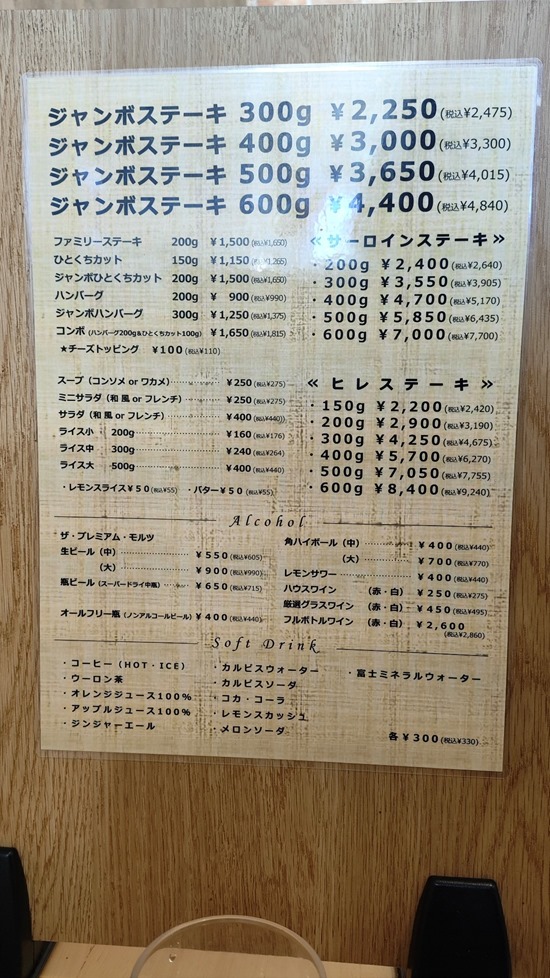 ジャンボステーキ 300g ¥2,250(税込¥2,475)
ジャンボステーキ 400g ¥3,000(税込¥3,300)
ジャンボステーキ 500g ¥3,650(税込¥4,015)
ジャンボステーキ 600g ¥4,400(税込¥4,840)
ファミリーステーキ 200g ¥1,500(税込¥1,650)
ひとくちカット 150g ¥1,150(税込¥1,265)
ジャンボひとくちカット 200g ¥1,500(税込¥1,650)
ハンバーグ 200g ¥ 900(税込¥990)
ジャンボハンバーグ 300g ¥1,250(税込¥1,375)
コンボ(ハンバーグ200g&ひとくちカット100g) ¥1,650(税込¥1,815)
★チーズトッピング ¥100(税込¥110)
≪サーロインステーキ≫
・200g ¥2,400(税込¥2,640)
・300g ¥3,550(税込¥3,905)
・400g ¥4,700(税込¥5,170)
・500g ¥5,850(税込¥6,435)
・600g ¥7,000(税込¥7,700)
スープ(コンソメ or ワカメ)………¥250(税込¥275)
ミニサラダ(和風 or フレンチ)………¥250(税込¥275)
サラダ(和風 or フレンチ)………¥400(税込¥440)
ライス小 200g………¥160(税込¥176)
ライス中 300g………¥240(税込¥264)
ライス大 500g………¥400(税込¥440)
・レモンスライス¥50(税込¥55) ・バター¥50(税込¥55)
≪ヒレステーキ≫
・150g ¥2,200(税込¥2,420)
・200g ¥2,900(税込¥3,190)
・300g ¥4,250(税込¥4,675)
・400g ¥5,700(税込¥6,270)
・500g ¥7,050(税込¥7,755)
・600g ¥8,400(税込¥9,240)
Alcohol
ザ・プレミアム・モルツ
生ビール(中)………¥550(税込¥605)
(大)………¥900(税込¥990)
瓶ビール(スーパードライ中瓶)……¥650(税込¥715)
オールフリー瓶(ノンアルコールビール)¥400(税込¥440)
角ハイボール(中)………¥400(税込¥440)
(大)………¥700(税込¥770)
レモンサワー………¥400(税込¥440)
ハウスワイン (赤・白) ¥250(税込¥275)
厳選グラスワイン (赤・白) ¥450(税込¥495)
フルボトルワイン (赤・白) ¥2,600
(税込¥2,860)
Soft Drink
・コーヒー(HOT・ICE)
・ウーロン茶
・オレンジジュース100%
・アップルジュース100%
・ジンジャーエール
・カルピスウォーター
・カルピスソーダ
・コカ・コーラ
・レモンスカッシュ
・メロンソーダ
・富士ミネラルウォーター
各¥300(税込¥330)